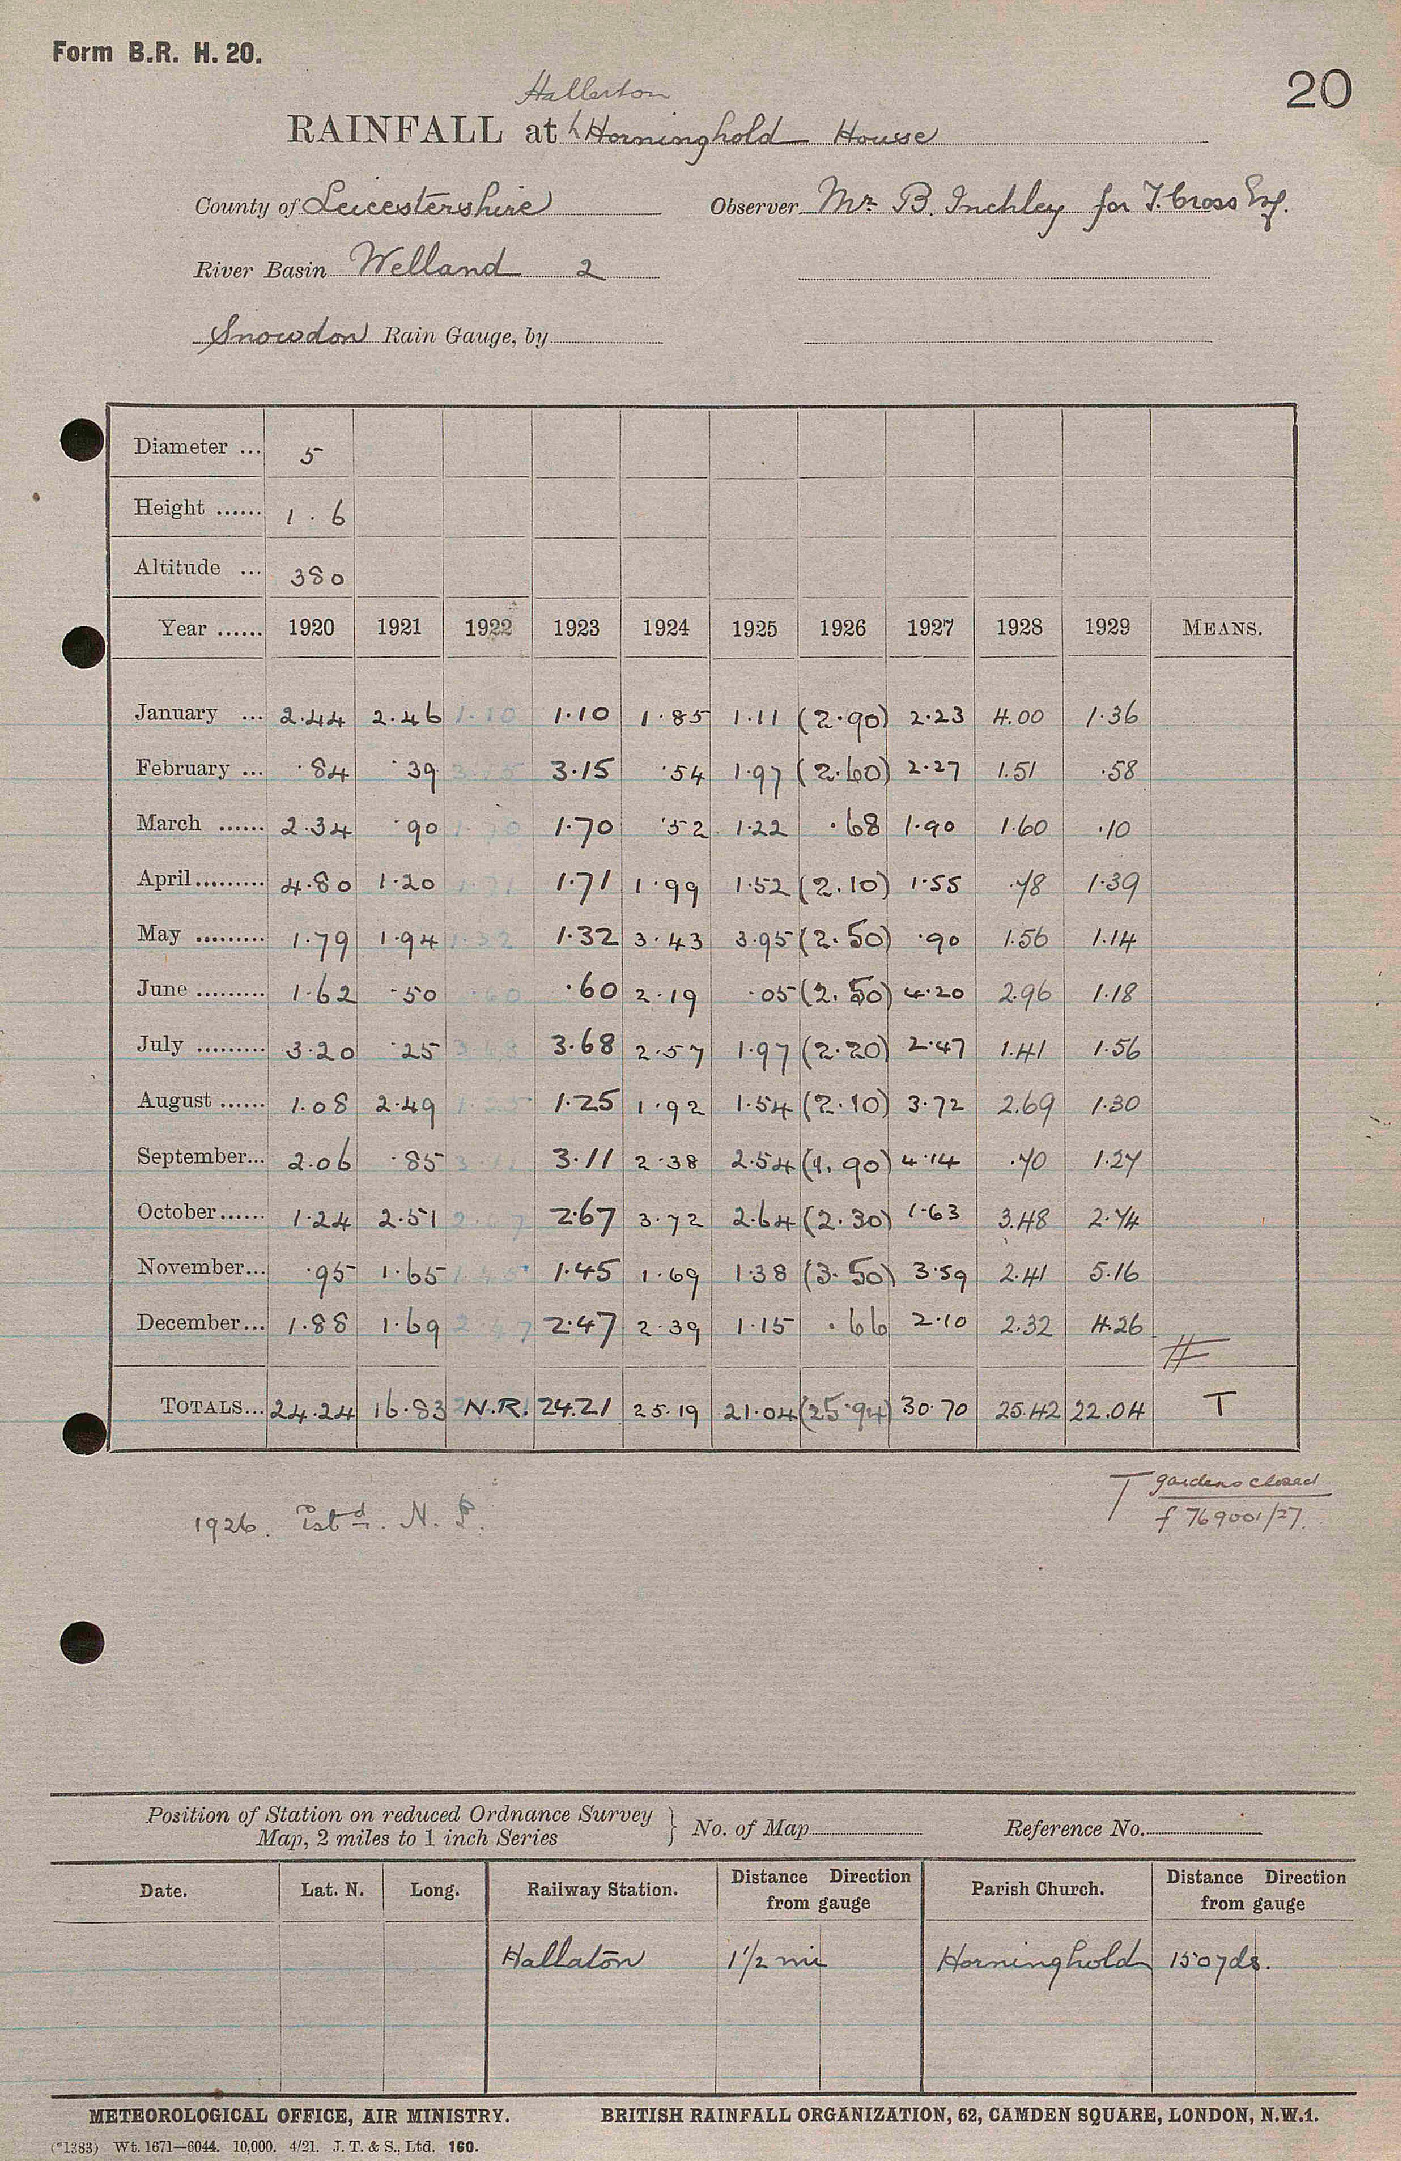 Form B.R. H. 20.
20
Hallerton
RAINFALL at Horninghold House
County of Leicestershire Observer Mr B. Inchley for T. Cross Esq.
River Basin Welland 2
Snowdon Rain Gauge, by
Diameter ... 5
Height ...... 1 . 6
Altitude ... 380
Year ...... 1920 1921 1922 1923 1924 1925 1926 1927 1928 1929 MEANS.
January ... 2.44 2.46 1.10 1.10 1.85 1.11 (2.90) 2.23 4.00 1.36
February ... .84 .39 3.15 3.15 .54 1.97 (2.60) 2.27 1.51 .58
March ...... 2.34 .90 1.70 1.70 .52 1.22 .68 1.90 1.60 .10
April......... 4.80 1.20 1.71 1.71 1.99 1.52 (2.10) 1.55 .78 1.39
May ......... 1.79 1.94 1.32 1.32 3.43 3.95 (2.50) .90 1.56 1.14
June ......... 1.62 .50 .60 .60 2.19 .05 (2.50) 4.20 2.96 1.18
July ......... 3.20 .25 3.68 3.68 2.57 1.97 (2.20) 2.47 1.41 1.56
August ...... 1.08 2.49 1.25 1.25 1.92 1.54 (2.10) 3.72 2.69 1.30
September... 2.06 .85 3.11 3.11 2.38 2.54 (1.90) 4.14 .70 1.27
October...... 1.24 2.51 2.67 2.67 3.72 2.64 (2.30) 1.63 3.48 2.74
November... .95 1.65 1.45 1.45 1.69 1.38 (3.50) 3.59 2.41 5.16
December... 1.88 1.69 2.47 2.47 2.39 1.15 .66 2.10 2.32 4.26
TOTALS... 24.24 16.83 N.R. 24.21 25.19 21.04 (25.94) 30.70 25.42 22.04 T
T gardens closed
f 769001/27.
1926. Estd. N.P.
Position of Station on reduced Ordnance Survey
Map, 2 miles to 1 inch Series } No. of Map Reference No.
Date. Lat. N. Long. Railway Station. Distance Direction from gauge Parish Church. Distance Direction from gauge
Hallaton 1 1/2 mi Horninghold 150 yds.
METEOROLOGICAL OFFICE, AIR MINISTRY. BRITISH RAINFALL ORGANIZATION, 62, CAMDEN SQUARE, LONDON, N.W.1.
(*1383) Wt. 1671—6044. 10,000. 4/21. J. T. & S., Ltd. 160.